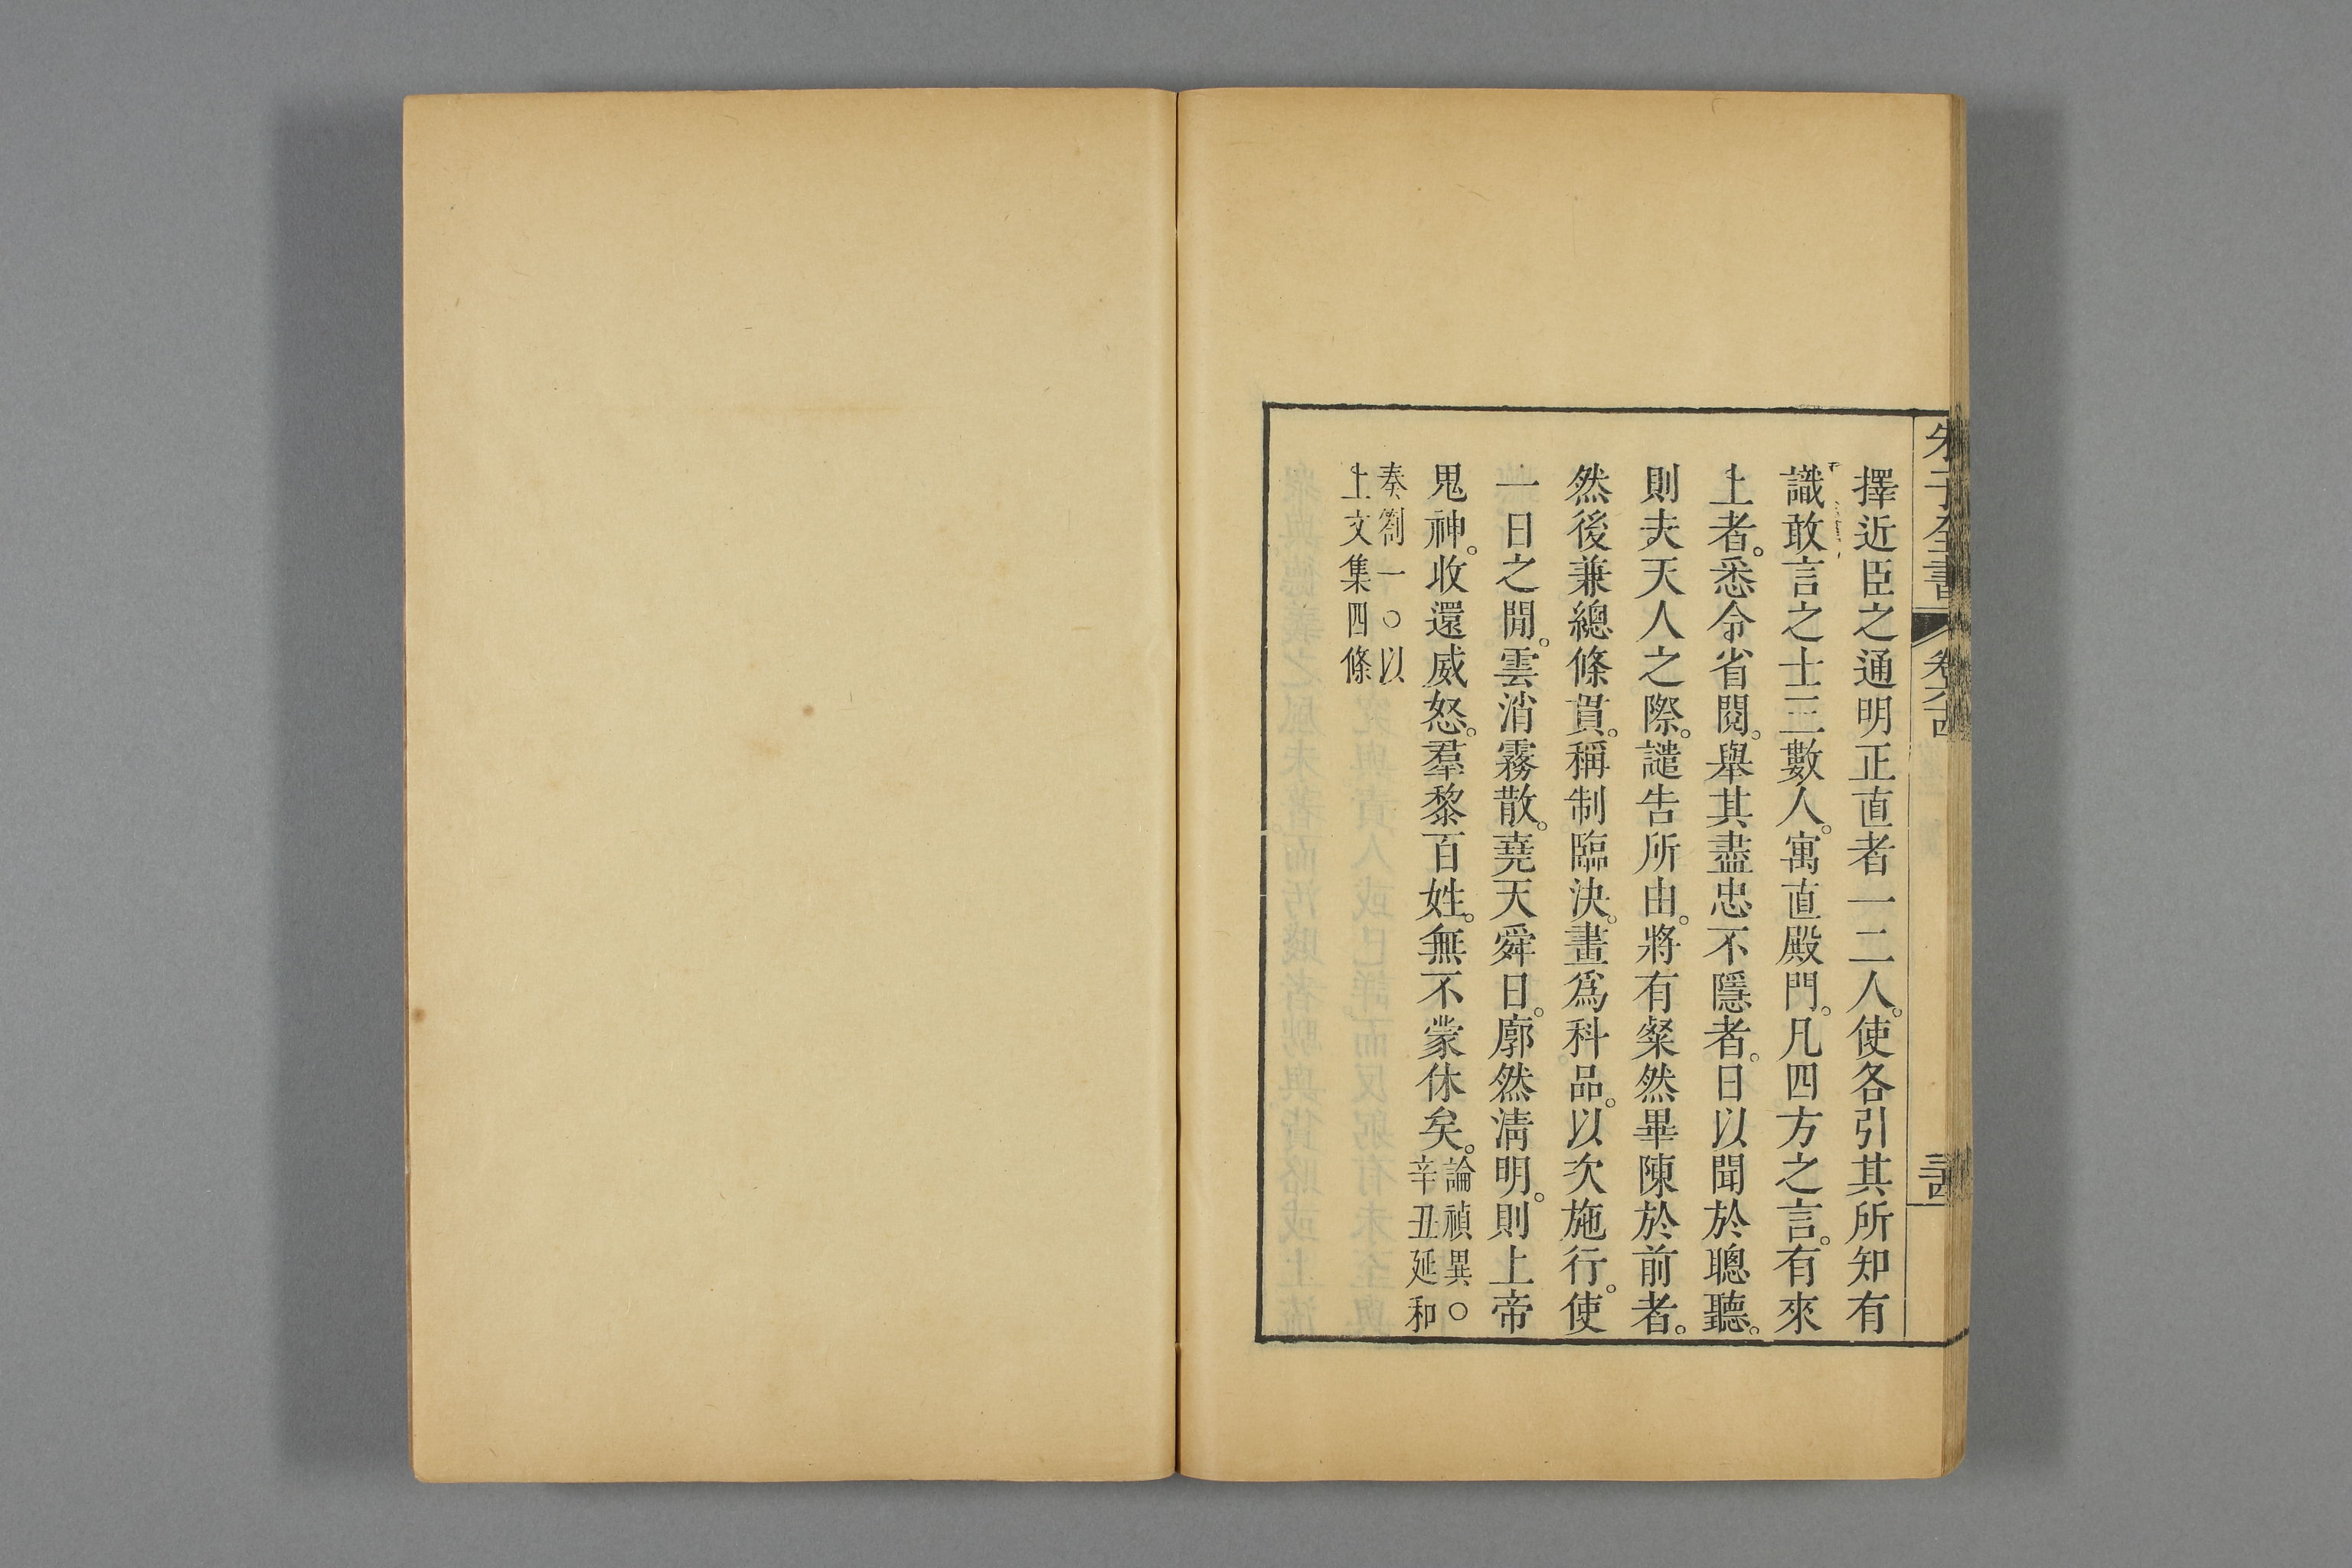 朱子全書 卷六十四 三十四
擇近臣之通明正直者一二人。使各引其所知有
識敢言之士三數人。寓直殿門。凡四方之言。有來
上者。悉令省閱。舉其盡忠不隱者。日以聞於聰聽。
則夫天人之際。譴告所由。將有粲然畢陳於前者。
然後兼總條貫。稱制臨決。畫爲科品。以次施行。使
一日之閒。雲消霧散。堯天舜日。廓然淸明。則上帝
鬼神。收還威怒。羣黎百姓。無不蒙休矣。論禎異○
辛丑延和
奏劄一○以
上文集四條